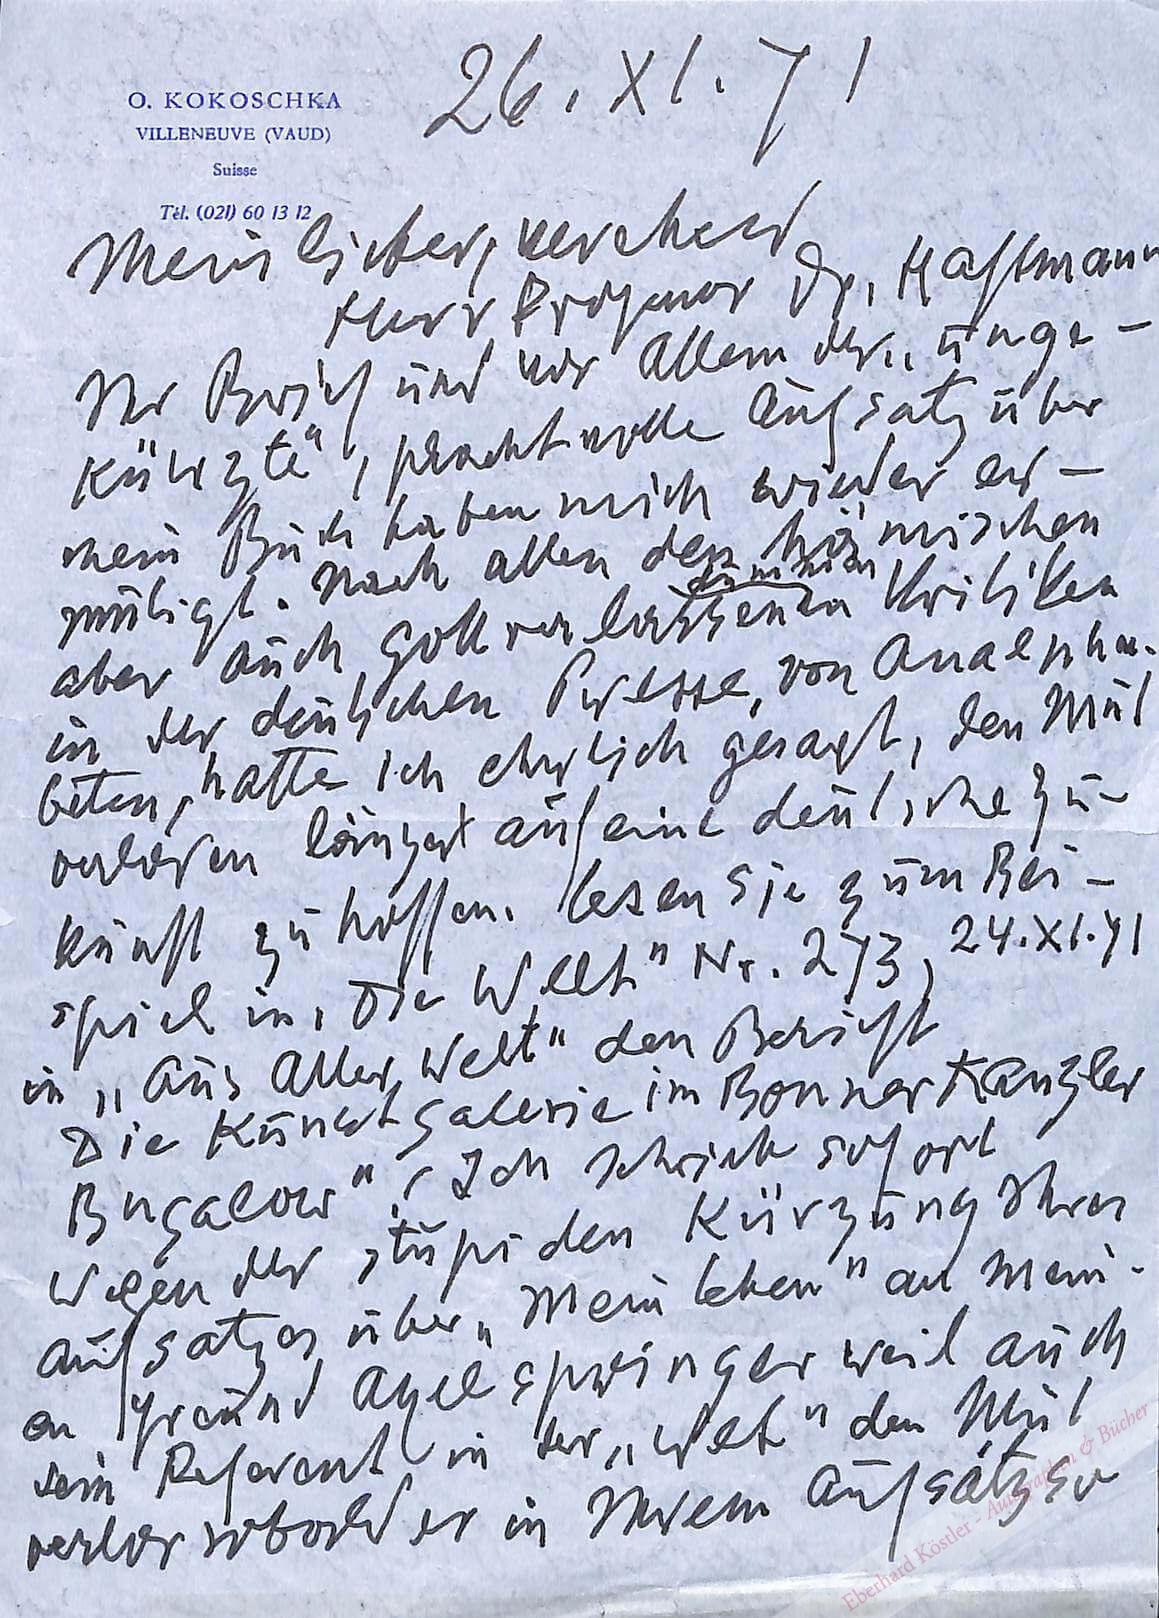 O. KOKOSCHKA
VILLENEUVE (VAUD)
Suisse
Tél. (021) 60 13 12
26. XI. 71
Mein lieber, verehrter
Herr Professor Dr. Haftmann
Ihr Brief und vor Allem der „unge-
kürzte", prachtvolle Aufsatz über
mein Buch haben mich wieder er-
mütigt. Nach allen den hämischen
dummen
aber auch gottverlassenen Kritiken
in der deutschen Presse, von Analpha-
beten, hatte ich ehrlich gesagt, den Mut
verloren längst auf eine deutsche Zu-
kunft zu hoffen. Lesen Sie zum Bei-
spiel in „Die Welt" Nr. 273, 24.XI.71
in „Aus Aller Welt" den Bericht
Die Kunstgalerie im Bonner Kanzler
Bugalow"! Ich schrieb sofort
wegen der stupiden Kürzung Ihres
Aufsatzes über „Mein Leben" an mein-
en Freund Axel Springer weil auch
sein Referent in der „Welt" den Mut
verlor sobald er in Ihrem Aufsatz so
Eberhard Köstler - Autographen & Bücher